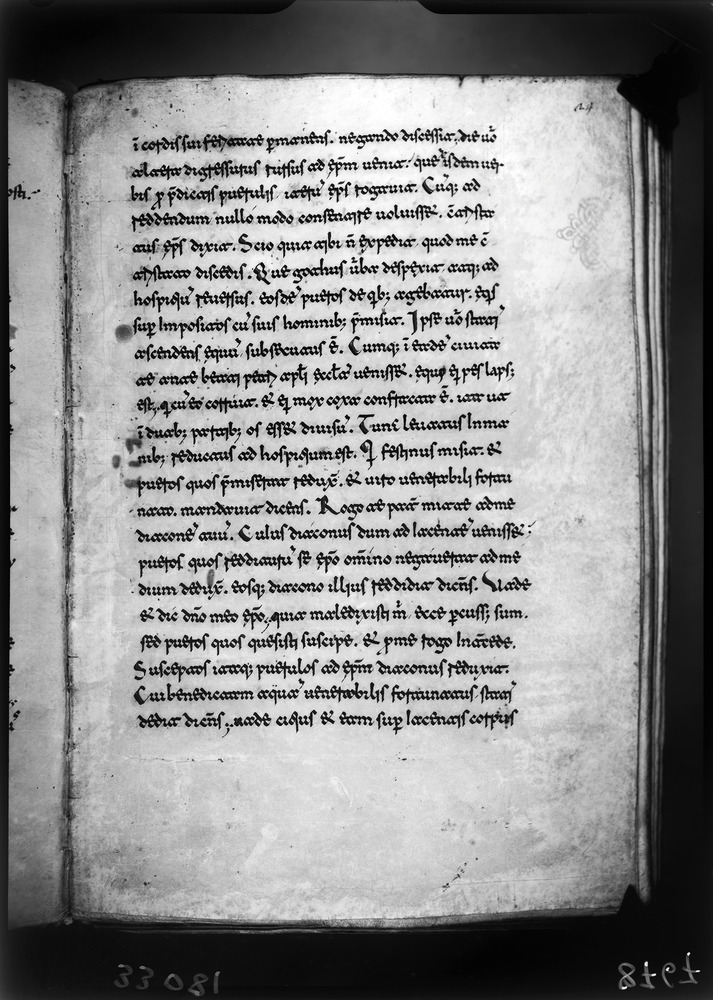 24
ī cordis sui feritate p̄manens. negando discessit. die ū̄o
altera digressurus rursus ad ep̄m uenit. que isdem uer-
bis ꝓ p̄dictis puerulis iteru ep̄s rogauit. Cu'q; ad
reddendum nullo modo consentire uoluisset. c̄trista
tus ep̄s dixit. Scio quia tibi n̄ expedit quod me c̄
tristato discedis. Que gothus uba despexit atq; ad
hospiciu reuersus. eosde pueros de qb; agebatur. eq̄s
sup̄ Impositos cu suis hominib; p̄misit. Ipse ū̄o stati
ascendens equu subsecutus ē. Cumq; ī eade ciuita
te ante beati petri apl̄i ecclā uenisset. equo ei pes laps;
est. q cu eo corruit. et ei mox coxa confracta ē. ita ut
ī duab; partib; os esset diuisu. Tunc leuatus In ma
nib; reductus ad hospiciu est. Q festinus misit. et
pueros quos p̄miserat reduxit. et uiro uenerabili fortu
nato. mandauit dicens. Rogo te pater mitte ad me
diacone tuu. Cuius diaconus dum ad iacente uenisset.
pueros quos redditurū se ep̄o om̄ino negauerat ad me
dium deduxit. eosq; diacono illius reddidit dicēs. Uade
et dic dn̄o meo ep̄o. quia maledixisti m̄ ecce p̄cuss; sum.
sed pueros quos quesisti suscipe. et p̄ me rogo Intercede.
Susceptos itaq; puerulos ad ep̄m diaconus reduxit.
Cui benedictam aqua uenerabilis fortunatus stati
dedit dicēs. uade citius et eam sup̄ iacentis corpus